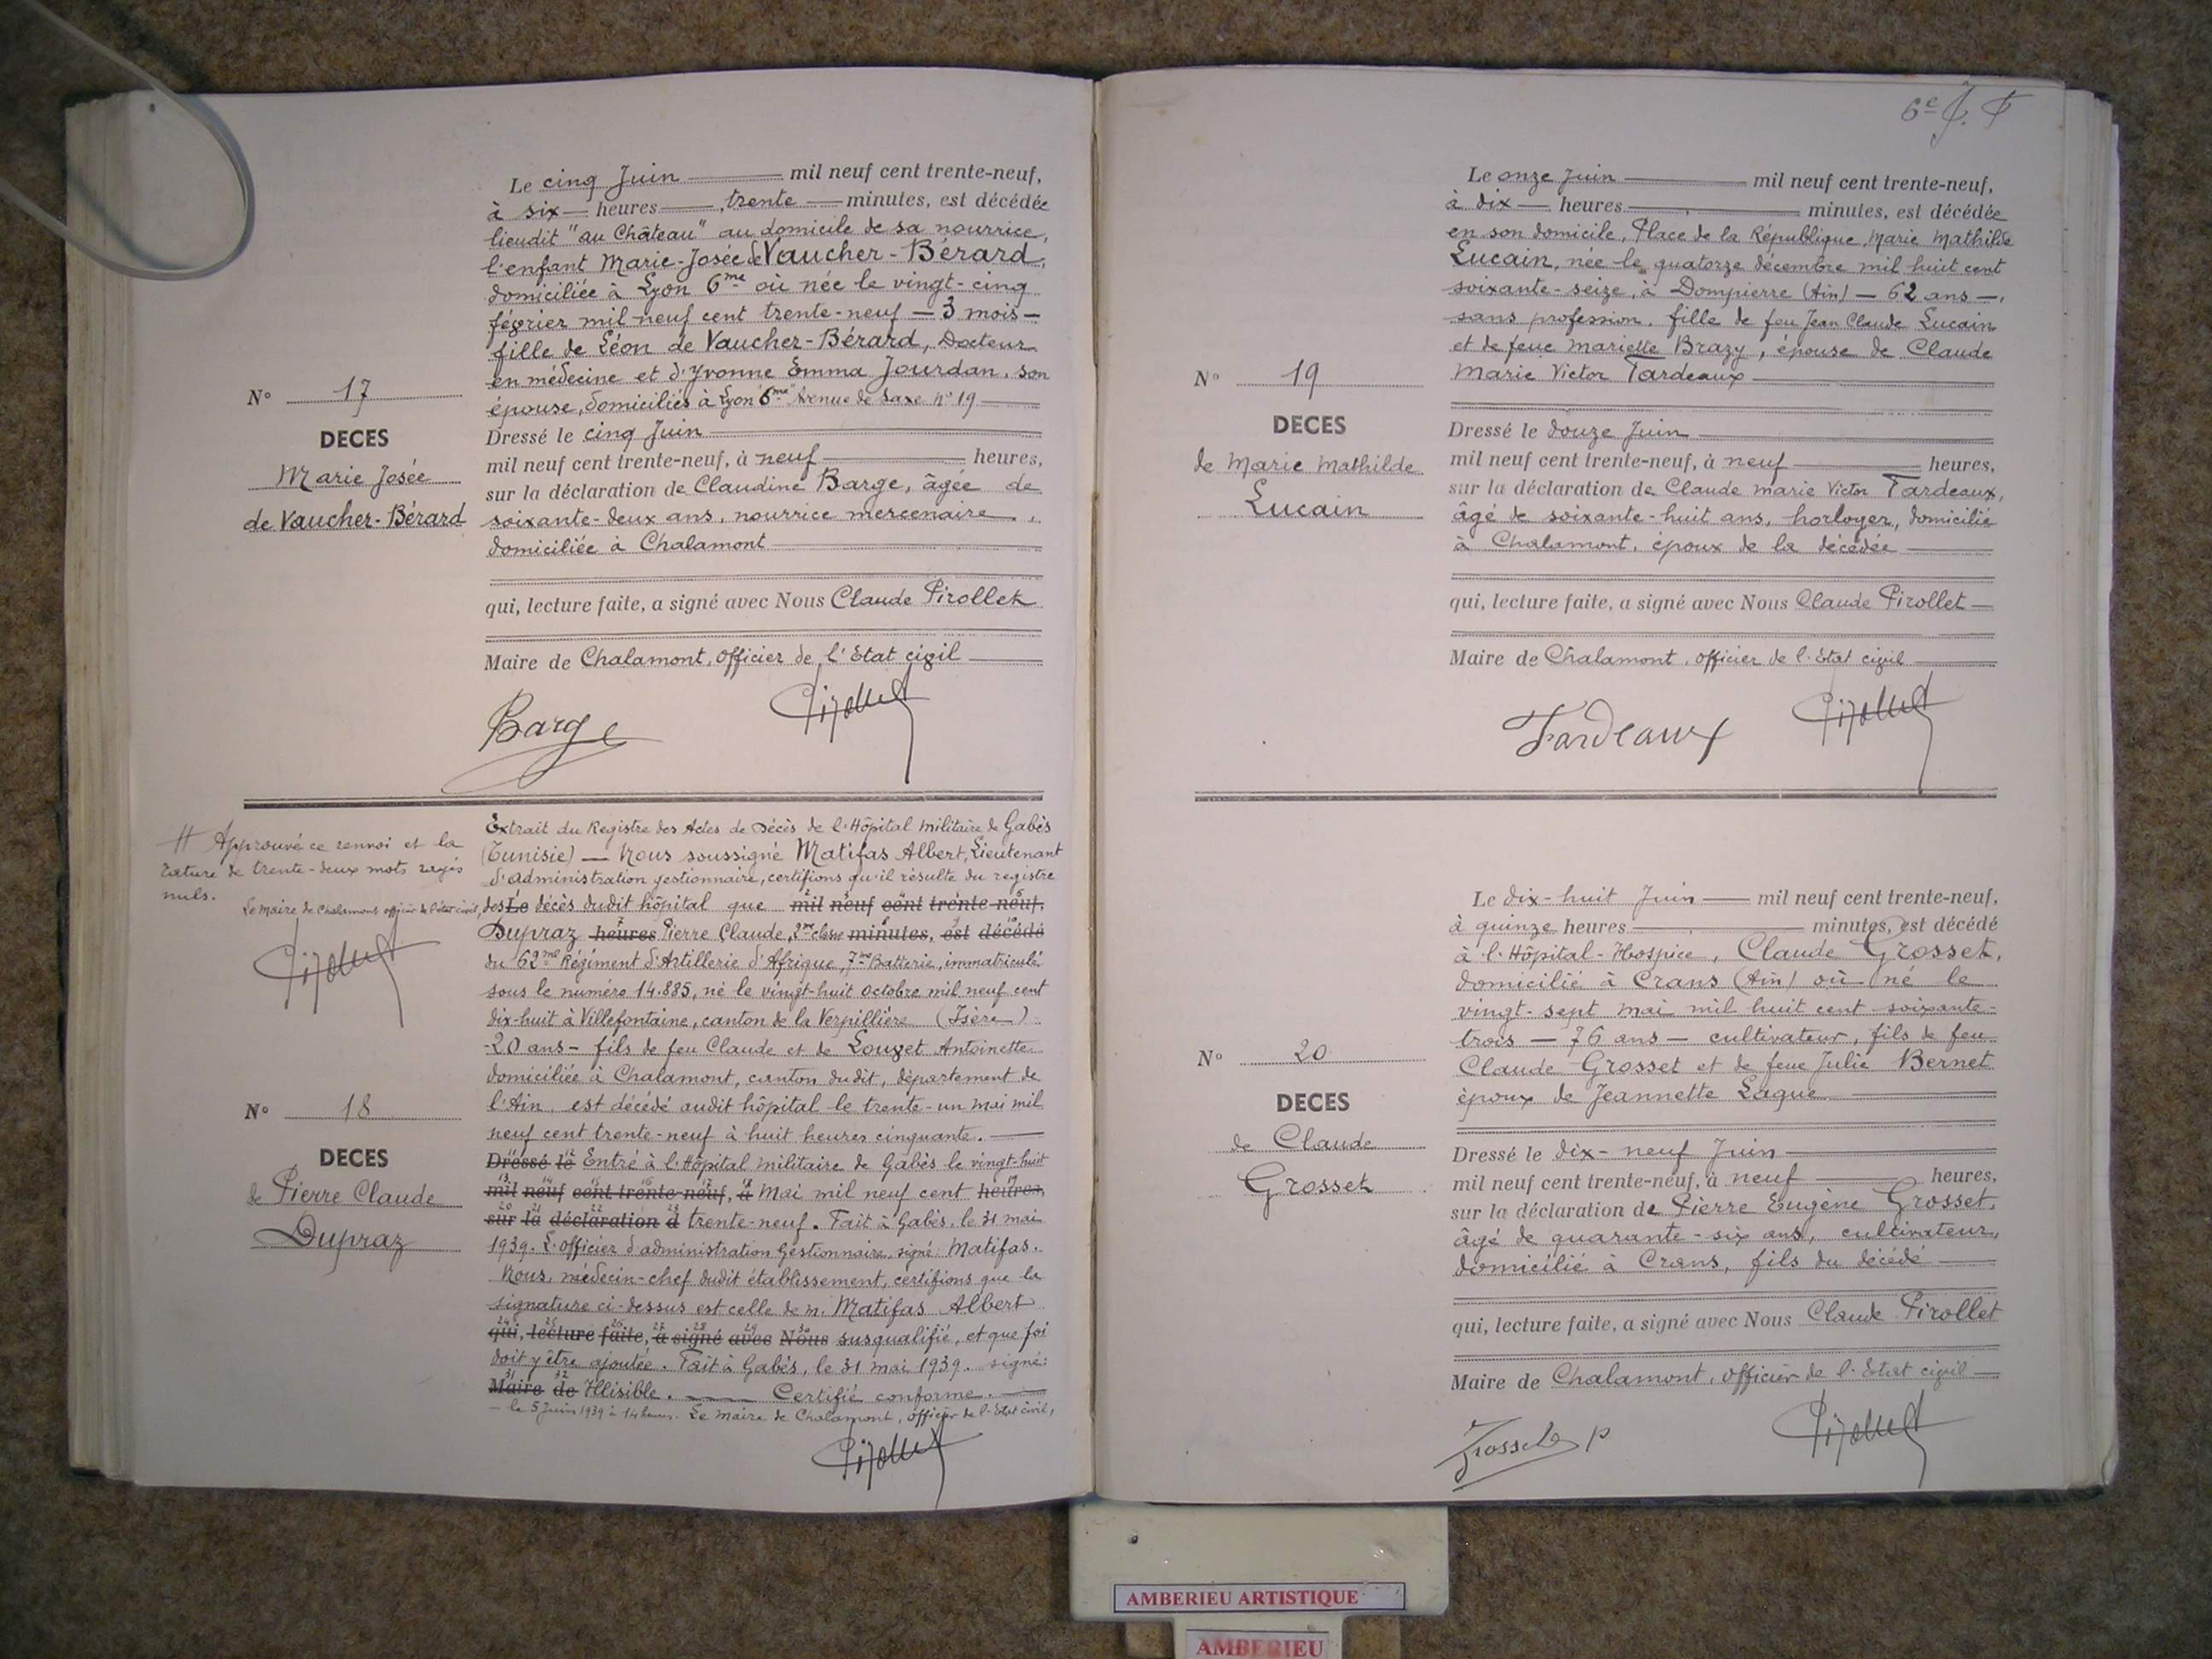 Le cinq Juin mil neuf cent trente-neuf,
à six heures, trente minutes, est décédée
lieudit "au Château" au domicile de sa nourrice,
l'enfant Marie-Josée de Vaucher-Bérard,
domiciliée à Lyon 6me où née le vingt-cinq
février mil neuf cent trente-neuf — 3 mois —
fille de Léon de Vaucher-Bérard, Docteur
en médecine et d'Yvonne Emma Jourdan, son
épouse, domiciliés à Lyon 6me Avenue de Saxe n° 19
N° 17
DECES
Marie Josée
de Vaucher-Bérard
Dressé le cinq Juin
mil neuf cent trente-neuf, à neuf heures,
sur la déclaration de Claudine Barge, âgée de
soixante-deux ans, nourrice mercenaire,
domiciliée à Chalamont
qui, lecture faite, a signé avec Nous Claude Pirollet
Maire de Chalamont, officier de l'Etat civil
Barge Pirollet
# Approuvé ce renvoi et la
rature de trente-deux mots rayés
nuls.
Le Maire de Chalamont officier de l'état civil,
Pirollet
Extrait du Registre des Actes de Décès de l'Hôpital Militaire de Gabès
(Tunisie) — Nous soussigné Matifas Albert, Lieutenant
d'administration gestionnaire, certifions qu'il résulte du registre
des Le décès dudit hôpital que mil neuf cent trente-neuf,
Dupraz heures Pierre Claude, 2me classe minutes, est décédé
du 62me Régiment d'Artillerie d'Afrique, 7me Batterie, immatriculé
sous le numéro 14.885, né le vingt-huit octobre mil neuf cent
dix-huit à Villefontaine, canton de la Verpillière (Isère)
-20 ans- fils de feu Claude et de Louzet Antoinette
domiciliée à Chalamont, canton dudit, département de
l'Ain, est décédé audit hôpital le trente-un mai mil
neuf cent trente-neuf à huit heures cinquante.
Dressé le Entré à l'Hôpital Militaire de Gabès le vingt-huit
mil neuf cent trente-neuf, à Mai mil neuf cent heures,
sur la déclaration d trente-neuf. Fait à Gabès, le 31 mai
1939. L'officier d'administration Gestionnaire, signé: Matifas.
Nous, médecin-chef dudit établissement, certifions que la
signature ci-dessus est celle de M. Matifas Albert
qui, lecture faite, a signé avec Nous susqualifié, et que foi
doit y être ajoutée. Fait à Gabès, le 31 mai 1939. signé:
Maire de Illisible. Certifié conforme.
— le 5 Juin 1939 à 14 heures. Le Maire de Chalamont, officier de l'Etat civil,
Pirollet
N° 18
DECES
de Pierre Claude
Dupraz
6e
Le onze Juin mil neuf cent trente-neuf,
à dix heures minutes, est décédée
en son domicile, Place de la République, Marie Mathilde
Lucain, née le quatorze décembre mil huit cent
soixante-seize, à Dompierre (Ain) — 62 ans —,
sans profession, fille de feu Jean Claude Lucain
et de feue Mariette Brazy, épouse de Claude
Marie Victor Tardeaux
N° 19
DECES
de Marie Mathilde
Lucain
Dressé le douze Juin
mil neuf cent trente-neuf, à neuf heures,
sur la déclaration de Claude Marie Victor Tardeaux,
âgé de soixante-huit ans, horloger, domicilié
à Chalamont, époux de la décédée
qui, lecture faite, a signé avec Nous Claude Pirollet
Maire de Chalamont, officier de l'Etat civil
Tardeaux Pirollet
Le dix-huit Juin mil neuf cent trente-neuf,
à quinze heures minutes, est décédé
à l'Hôpital-Hospice, Claude Grosset,
domicilié à Crans (Ain) où né le
vingt-sept mai mil huit cent soixante-
trois — 76 ans — cultivateur, fils de feu
Claude Grosset et de feue Julie Bernet
époux de Jeannette Lague
N° 20
DECES
de Claude
Grosset
Dressé le dix-neuf Juin
mil neuf cent trente-neuf, à neuf heures,
sur la déclaration de Pierre Eugène Grosset,
âgé de quarante-six ans, cultivateur,
domicilié à Crans, fils du décédé
qui, lecture faite, a signé avec Nous Claude Pirollet
Maire de Chalamont, officier de l'Etat civil
Grosset P Pirollet
AMBERIEU ARTISTIQUE
AMBERIEU